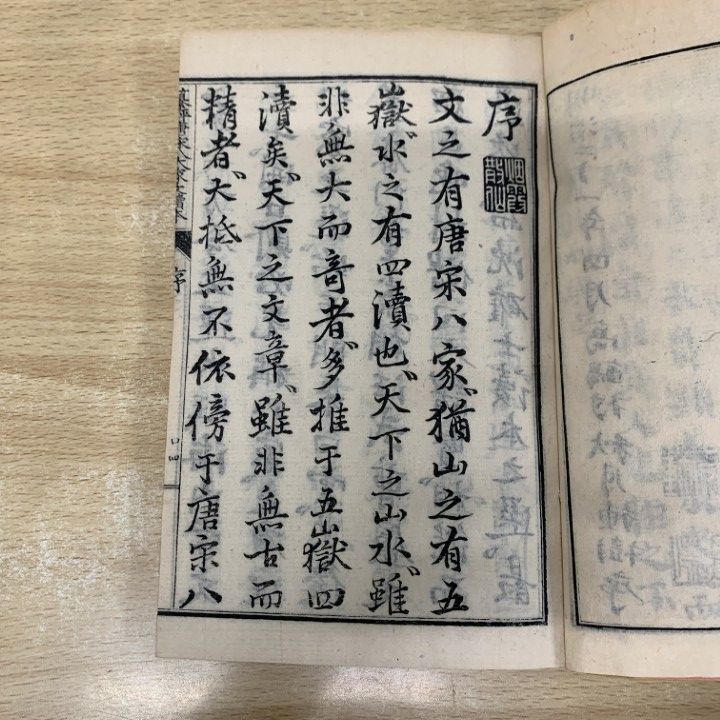 序
文之有唐宋八家、猶山之有五
嶽、水之有四瀆也、天下之山水、雖
非無大而竒者、多推于五嶽四
瀆矣、天下之文章、雖非無古而
精者、大抵無不依傍于唐宋八
序